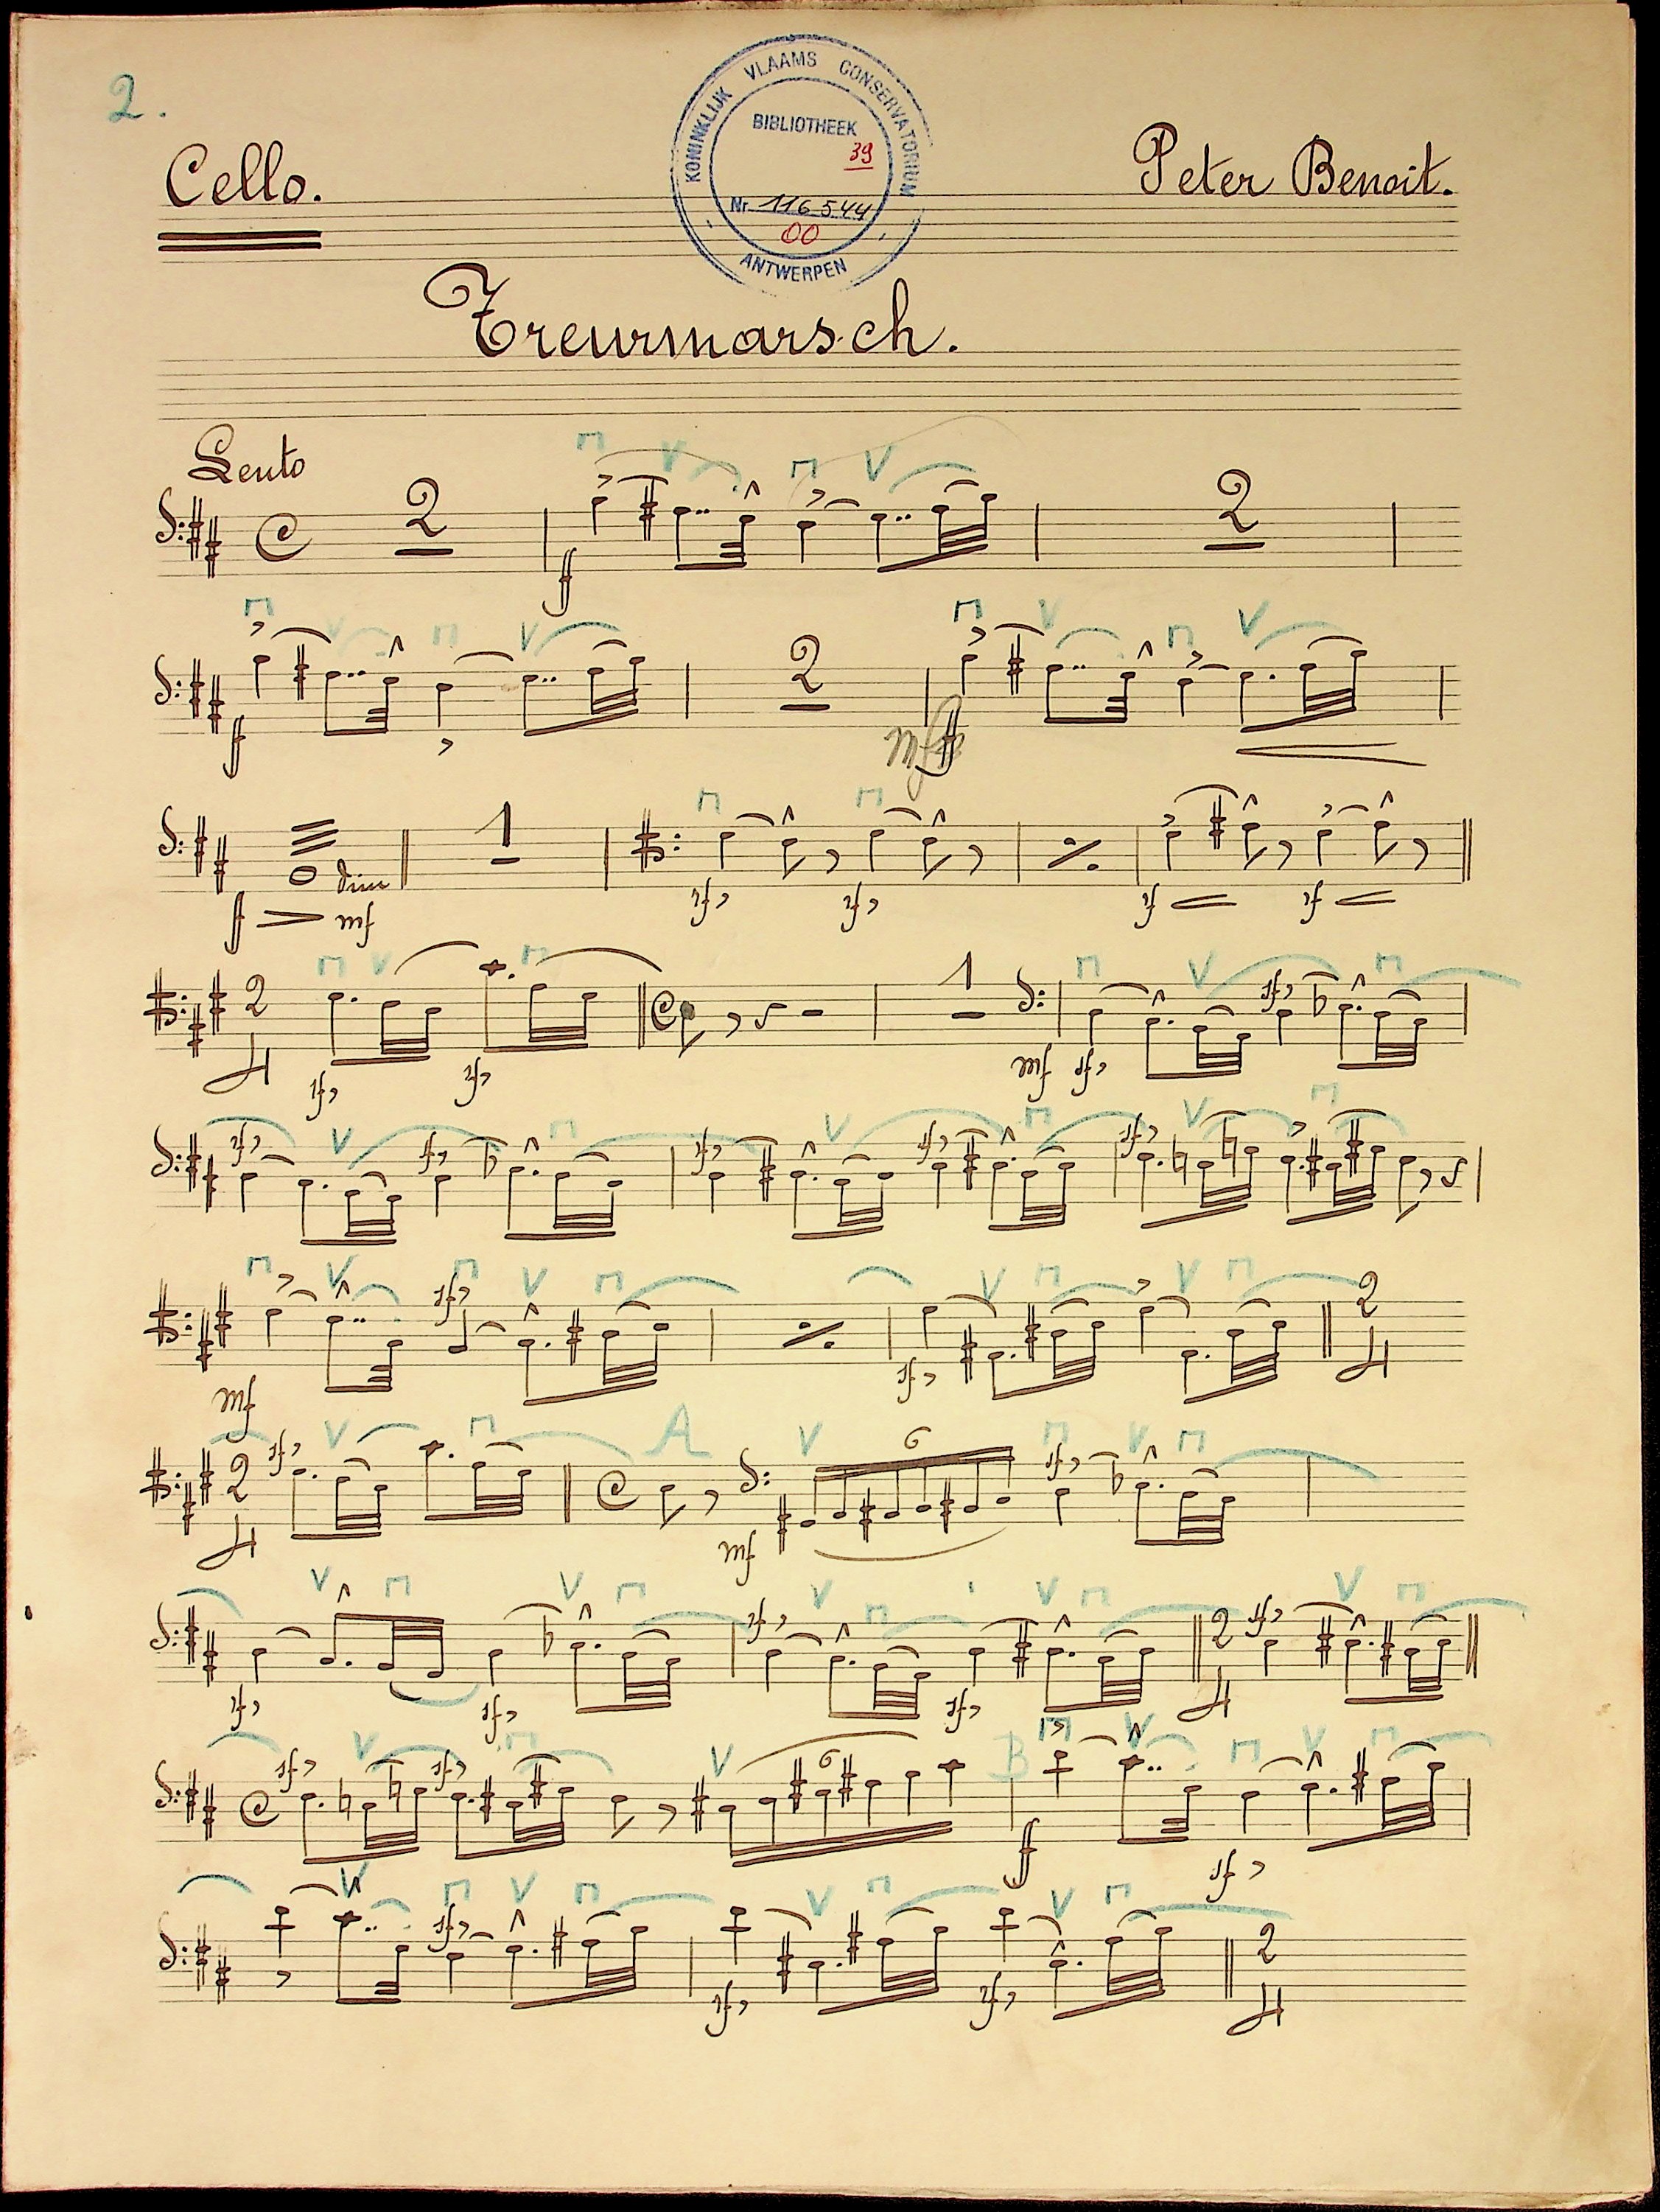 2.
KONINKLIJK VLAAMS CONSERVATORIUM
BIBLIOTHEEK
39
Nr. 116 544
00
ANTWERPEN
Cello.
Peter Benoit.
Treurmarsch.
Lento
2
f
2
f
2
mf
f
dim
1
f mf
sf sf sf sf
2
4
1
sf sf mf sf sf
sf sf sf sf sf
sf
2
mf sf
4
2
sf
A
6
sf
4
mf
sf
2
sf
sf sf sf
4
sf sf
6
B
f
sf
sf
2
sf sf
4